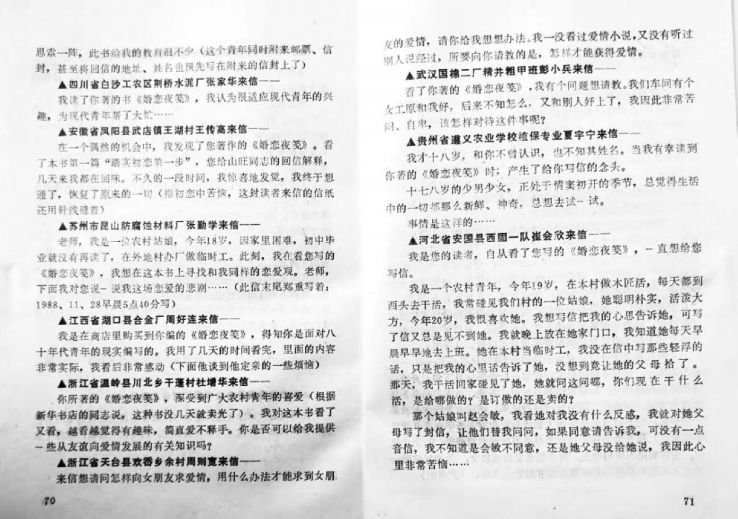 思索一阵，此书给我的教育很不少（这个青年同时附来邮票、信
封，甚至将回信的地址、姓名也预先写在附来的信封上了）
▲四川省白沙工农区荆桥水泥厂张家华来信——
我读了你著的书《婚恋夜笺》，我认为很适应现代青年的兴
趣，为现代青年帮了大忙……
▲安徽省凤阳县武店镇王湖村王传高来信——
在一个偶然的机会中，我发现了您著作的《婚恋夜笺》。看
了本书第一篇“踏实初恋第一步”，您给山旺同志的回信解释，
几天来我都在回味。不久的一段时间，我惊喜地发觉，我终于想
通了，恢复了原来的一切（指初恋中苦恼，这封读者来信的信纸
还用针线缝着）
▲苏州市昆山防腐蚀材料厂张勤学来信——
老师，我是一位农村姑娘，今年18岁，因家里困难，初中毕
业就没有再读了，在外地村办厂做临时工。此刻，我在看您写的
《婚恋夜笺》，我想在这本书上寻找和我同样的恋爱观。老师，
下面我对您说一说我这场恋爱的悲剧……（此信末尾郑重写着：
1988、11、28早晨5点40分写）
▲江西省湖口县合金厂周好连来信——
我是在商店里购买到你编的《婚恋夜笺》，得知你是面对八
十年代青年的现实编写的。我用了几天的时间看完，里面的内容
非常实际，我看后非常感动（下面他谈到他定亲的一些烦恼）
▲浙江省温岭县川北乡干蓬村杜增华来信——
你所著的《婚恋夜笺》，深受到广大农村青年的喜爱（根据
新华书店的同志说，这种书没几天就卖光了）。我对这本书看了
又看，越看越觉得有趣味，简直爱不释手。你是否可以给我提供
一些从友谊向爱情发展的有关知识吗？
▲浙江省天台县欢香乡余村周则宽来信——
来信想请问怎样向女朋友求爱情，用什么办法才能求到女朋
70
友的爱情，请你给我想想办法。我一没看过爱情小说，又没有听过
别人说经过，所要向你请教的是，怎样才能获得爱情。
▲武汉国棉二厂精并粗甲班彭小兵来信——
看了你著的《婚恋夜笺》，我有个问题想请教。我们车间有个
女工原和我好，后来不知怎么，又和别人好上了，我因此非常苦
闷、自卑，该怎样对待这件事呢？
▲贵州省遵义农业学校植保专业夏宇宁来信——
我才十八岁，和你不曾认识，也不知其姓名。当我有幸读到
你著的《婚恋夜笺》时，产生了给你写信的念头。
十七八岁的少男少女，正处于情窦初开的季节，总觉得生活
中的一切都那么新鲜、神奇，总想去试一试。
事情是这样的……
▲河北省安国县西图一队崔会欣来信——
我是您的读者，自从看了您写的《婚恋夜笺》，一直想给您
写信。
我是一个农村青年，今年19岁，在本村做木匠活，每天都到
西头去干活，我常碰见我们村的一位姑娘，她聪明朴实，活泼大
方，今年20岁，我很喜欢她。我想写信把我的心思告诉她，可写
了信又总是见不到她。我就晚上放在她家门口，我知道她每天早
晨早早地去上班。她在本村当临时工，我没在信中写那些轻浮的
话，只是把我的心里话告诉了她，没想到竟让她的父母拾了。
那天，我干活回家碰见了她，她就问这问哪，你们现在干什么
活，是给哪做的？是订做的还是卖的？
那个姑娘叫赵会敏，我看她对我没有什么反感，我就对她父
母写了封信，让他们替我问问，如果同意请告诉我，可没有一点
音信，我不知道是会敏不同意，还是她父母没给她说，我因此心
里非常苦恼……
71